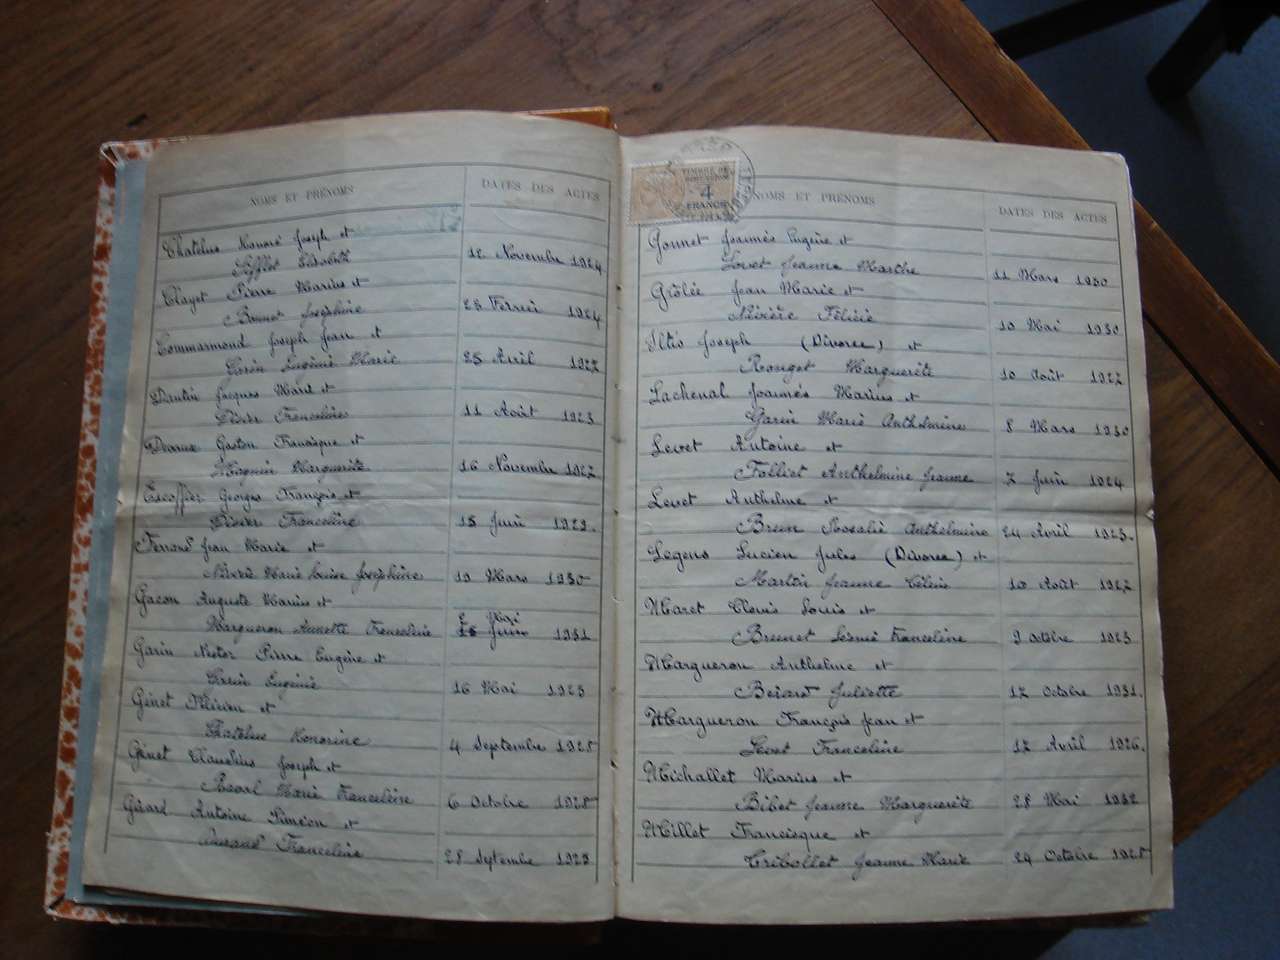 NOMS ET PRÉNOMS
DATES DES ACTES
Chatelus Honoré Joseph et
Elisabeth
12 Novembre 1924
Clayet Pierre Marius et
Bonnet Joséphine
23 Février 1924
Commarmond Joseph Jean et
Garin Eugénie Marie
25 Avril 1927
Dantin Jacques Marie et
Didier Franceline
11 Août 1923
Devaux Gaston Francisque et
Magnin Marguerite
16 Novembre 1927
Escoffier Georges François et
Didier Franceline
15 Juin 1929.
Ferrand Jean Marie et
Marie Louise Joséphine
19 Mars 1930
Gacon Auguste Marius et
2 Mai
Margueron Annette Franceline
Juin 1931
Garin Nestor Pierre Eugène et
Garin Eugénie
16 Mai 1923
Génet et
Chatelus Honorine
4 Septembre 1928
Génet Claudius Joseph et
Marie Franceline
6 Octobre 1928
Girard Antoine Siméon et
Franceline
28 Septembre 1923
TIMBRE DE DIMENSION
4
FRANCS
NOMS ET PRÉNOMS
DATES DES ACTES
Gonnet Joannès Eugène et
Levet Jeanne Marthe
11 Mars 1930
Grôlée Jean Marie et
Nivière Félicie
10 Mai 1930
Iltis Joseph (Divorce) et
Rouget Marguerite
10 Août 1927
Lachenal Joannès Marius et
Garin Marie Anthelmine
8 Mars 1930
Levet Antoine et
Folliet Anthelmine Jeanne
7 Juin 1924
Levet Anthelme et
Brun Rosalie Anthelmine
24 Avril 1923.
Legens Lucien Jules (Divorce) et
Martin Jeanne Célina
10 Août 1927
Maret Clovis Louis et
Brunet Franceline
9 octobre 1923
Margueron Anthelme et
Berard Juliette
17 Octobre 1931.
Margueron François Jean et
Levet Franceline
17 Avril 1926.
Michallet Marius et
Bibet Jeanne Marguerite
28 Mai 1932
Millet Francisque et
Tribollet Jeanne Marie
24 Octobre 1928